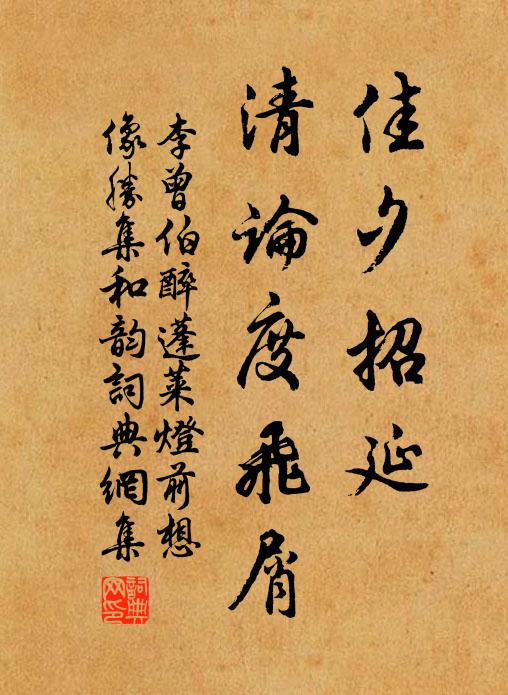 佳夕招延
清論度飛屑
李曾伯醉蓬萊燈前想
像勝集和韵詞典網集
詞典网印